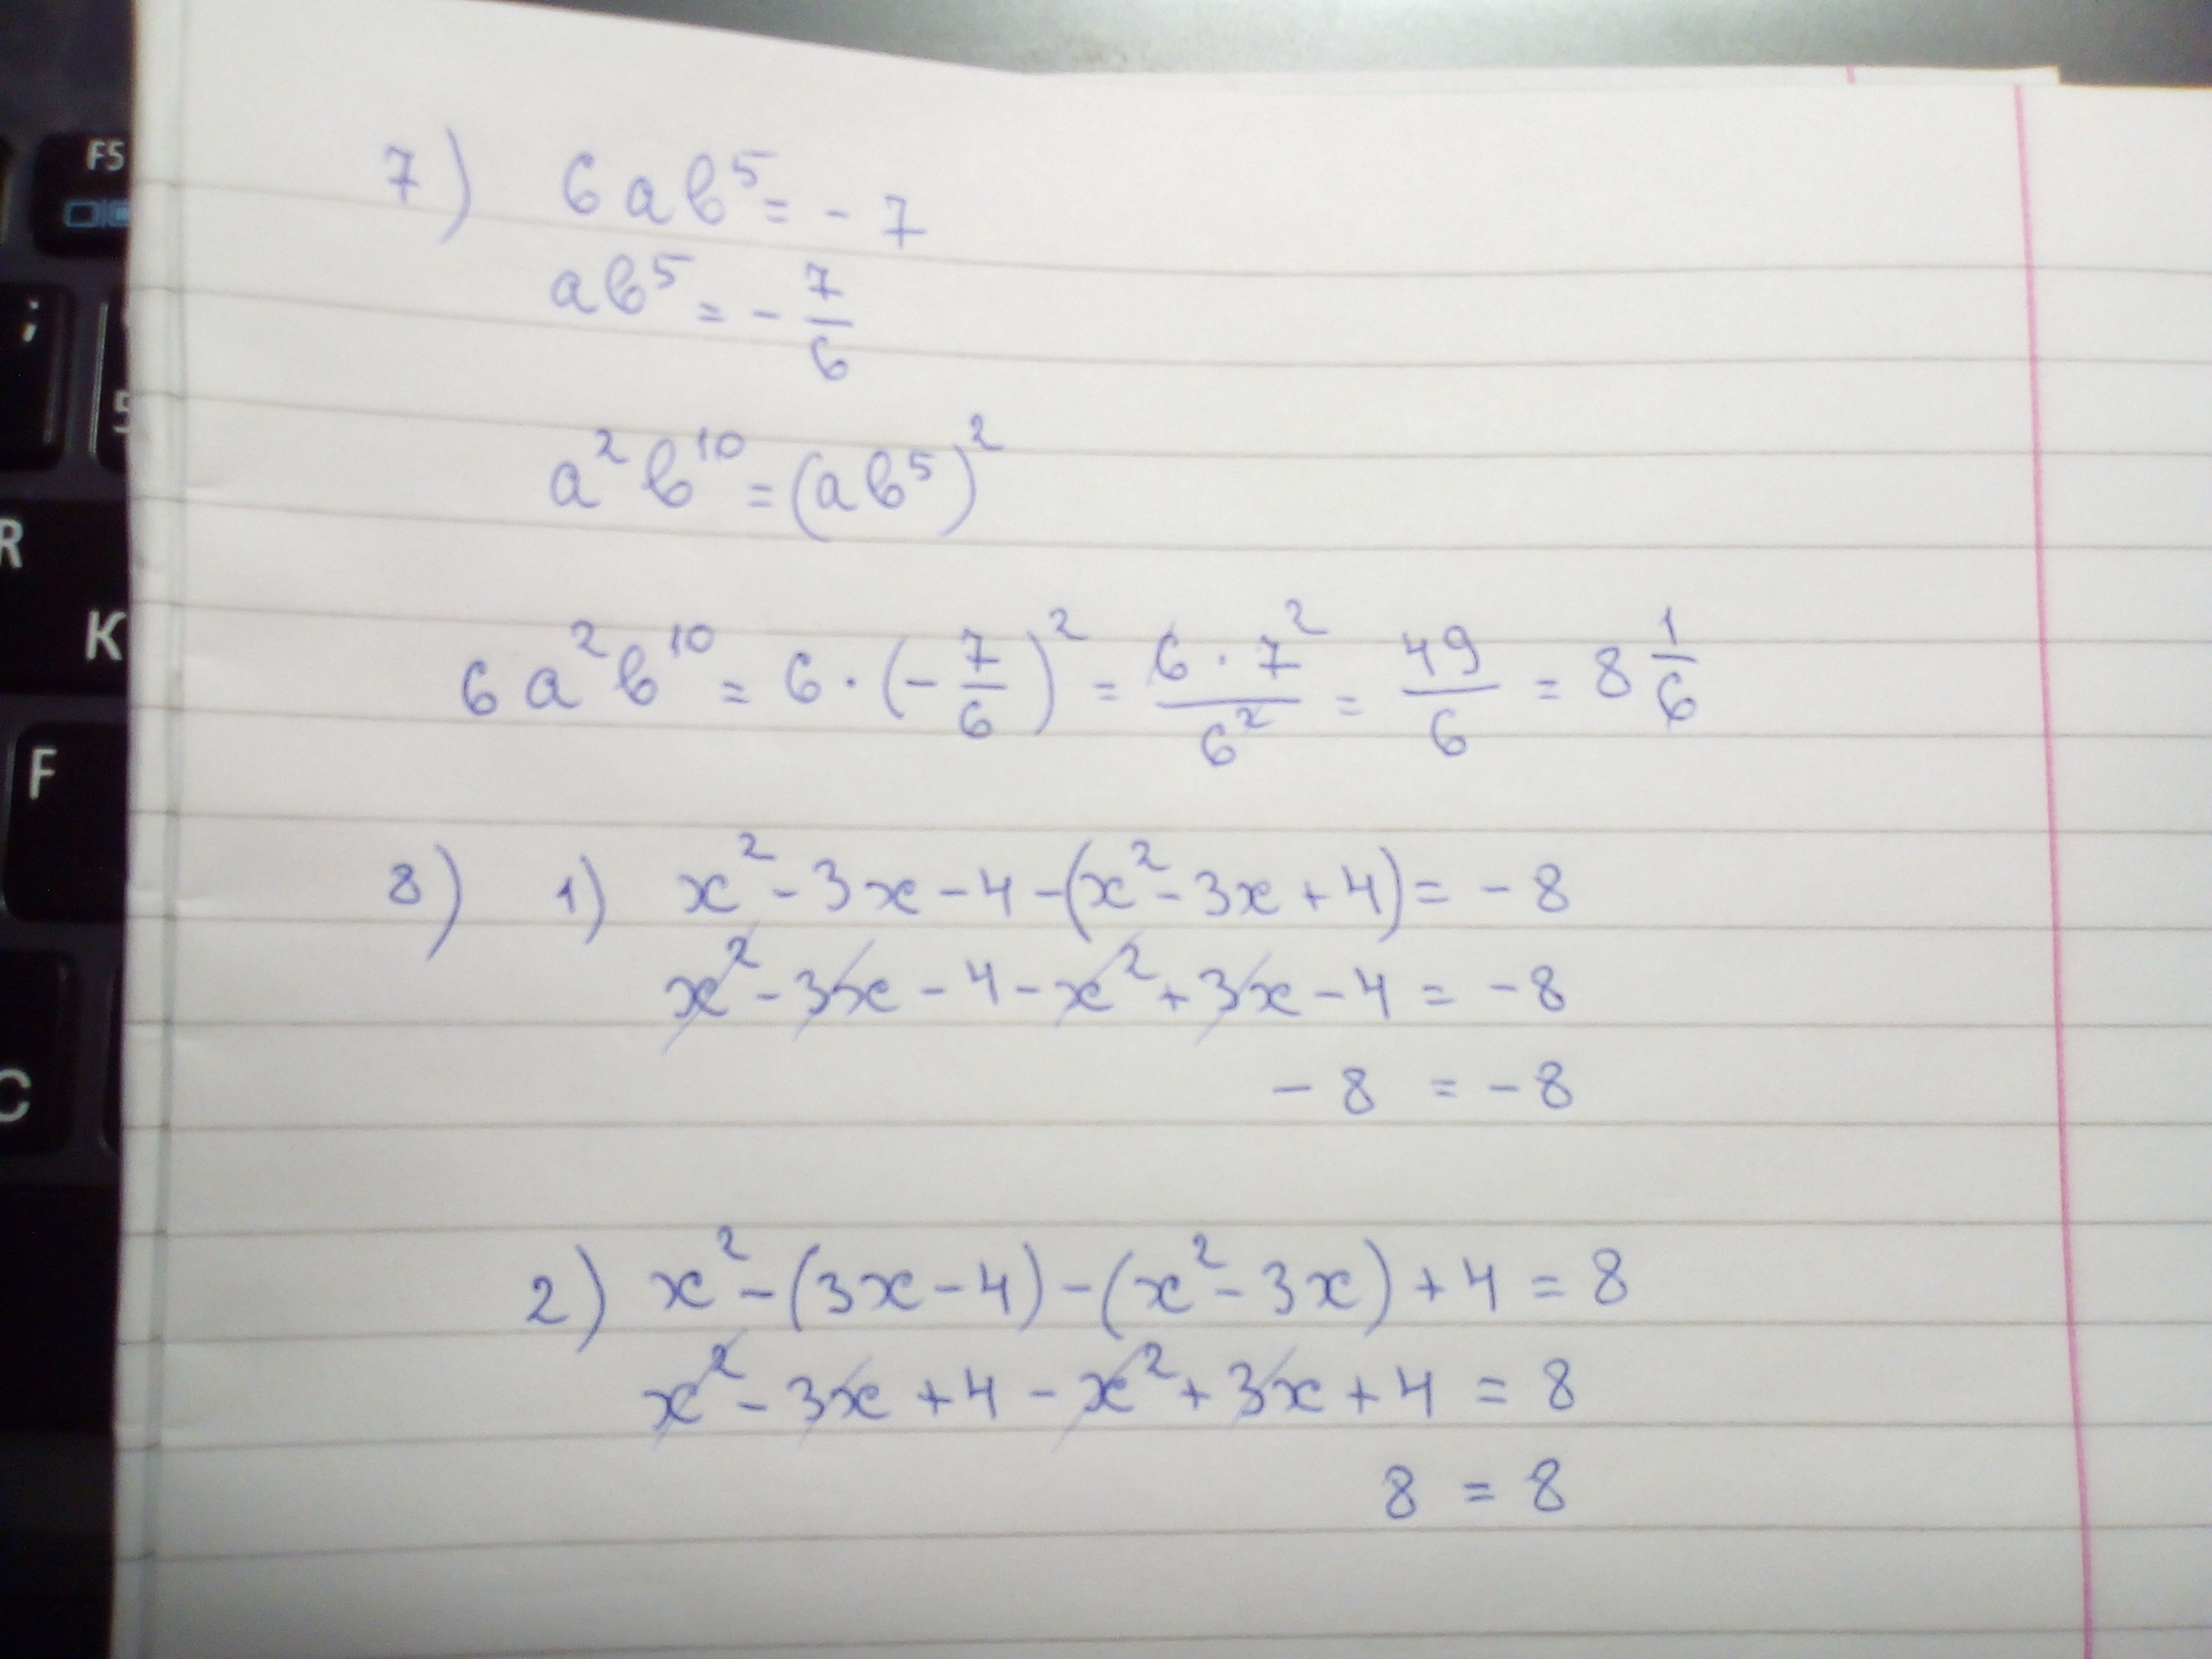 F5
;
5
R
K
F
C
7) 6ab⁵ = -7
ab⁵ = -7/6
a²b¹⁰ = (ab⁵)²
6a²b¹⁰ = 6·(-7/6)² = 6·7²/6² = 49/6 = 8 1/6
8) 1) x² - 3x - 4 - (x² - 3x + 4) = -8
x² - 3x - 4 - x² + 3x - 4 = -8
-8 = -8
2) x² - (3x - 4) - (x² - 3x) + 4 = 8
x² - 3x + 4 - x² + 3x + 4 = 8
8 = 8